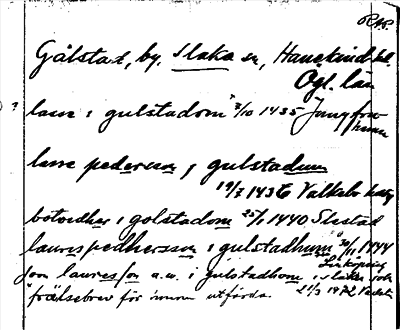 RAP.
Gålstad, by, Slaka sn, Hanekind hd.
Ögl. län
? lasse i gulstadom 3/10 1435 Jungfru
hamn
lasse pedersson j gulstadum
19/7 1436 Valkebo härad
botvedher i golstadom 25/1 1440 Slestad
laurespedhersson i gulstadhum 30/11 1444
Linköping
jon lauresson a.u. i gulstadhom i slaka sokn
"frälsebrev för innan utfärda. 21/3 1472 Vadst.